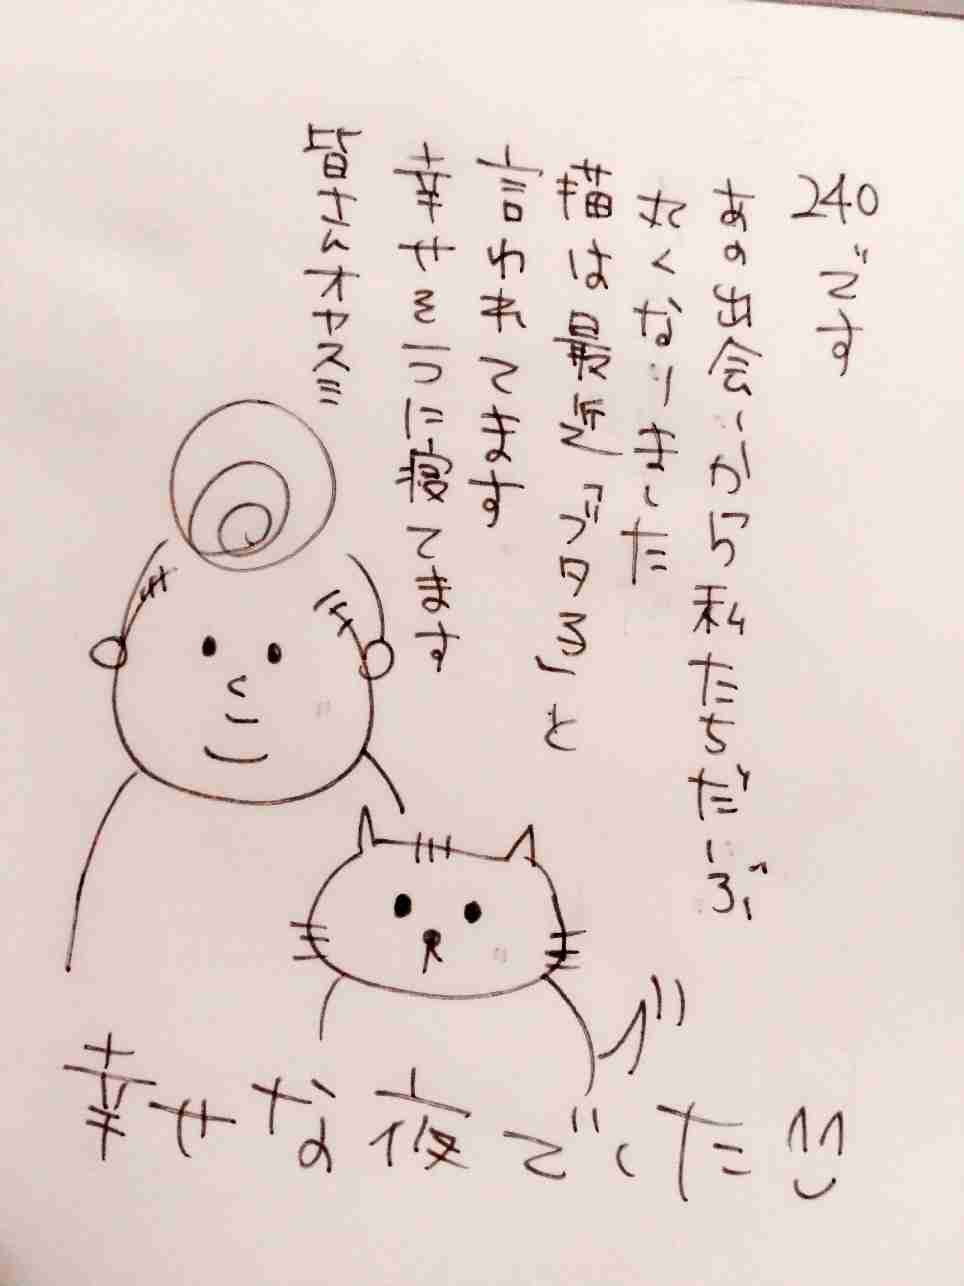 240です
あの出会いから私たちだいぶ
丸くなりました
猫は最近「ブタろ」と
言われてます
幸せそうに寝てます
皆さんオヤスミ
幸せな夜でした